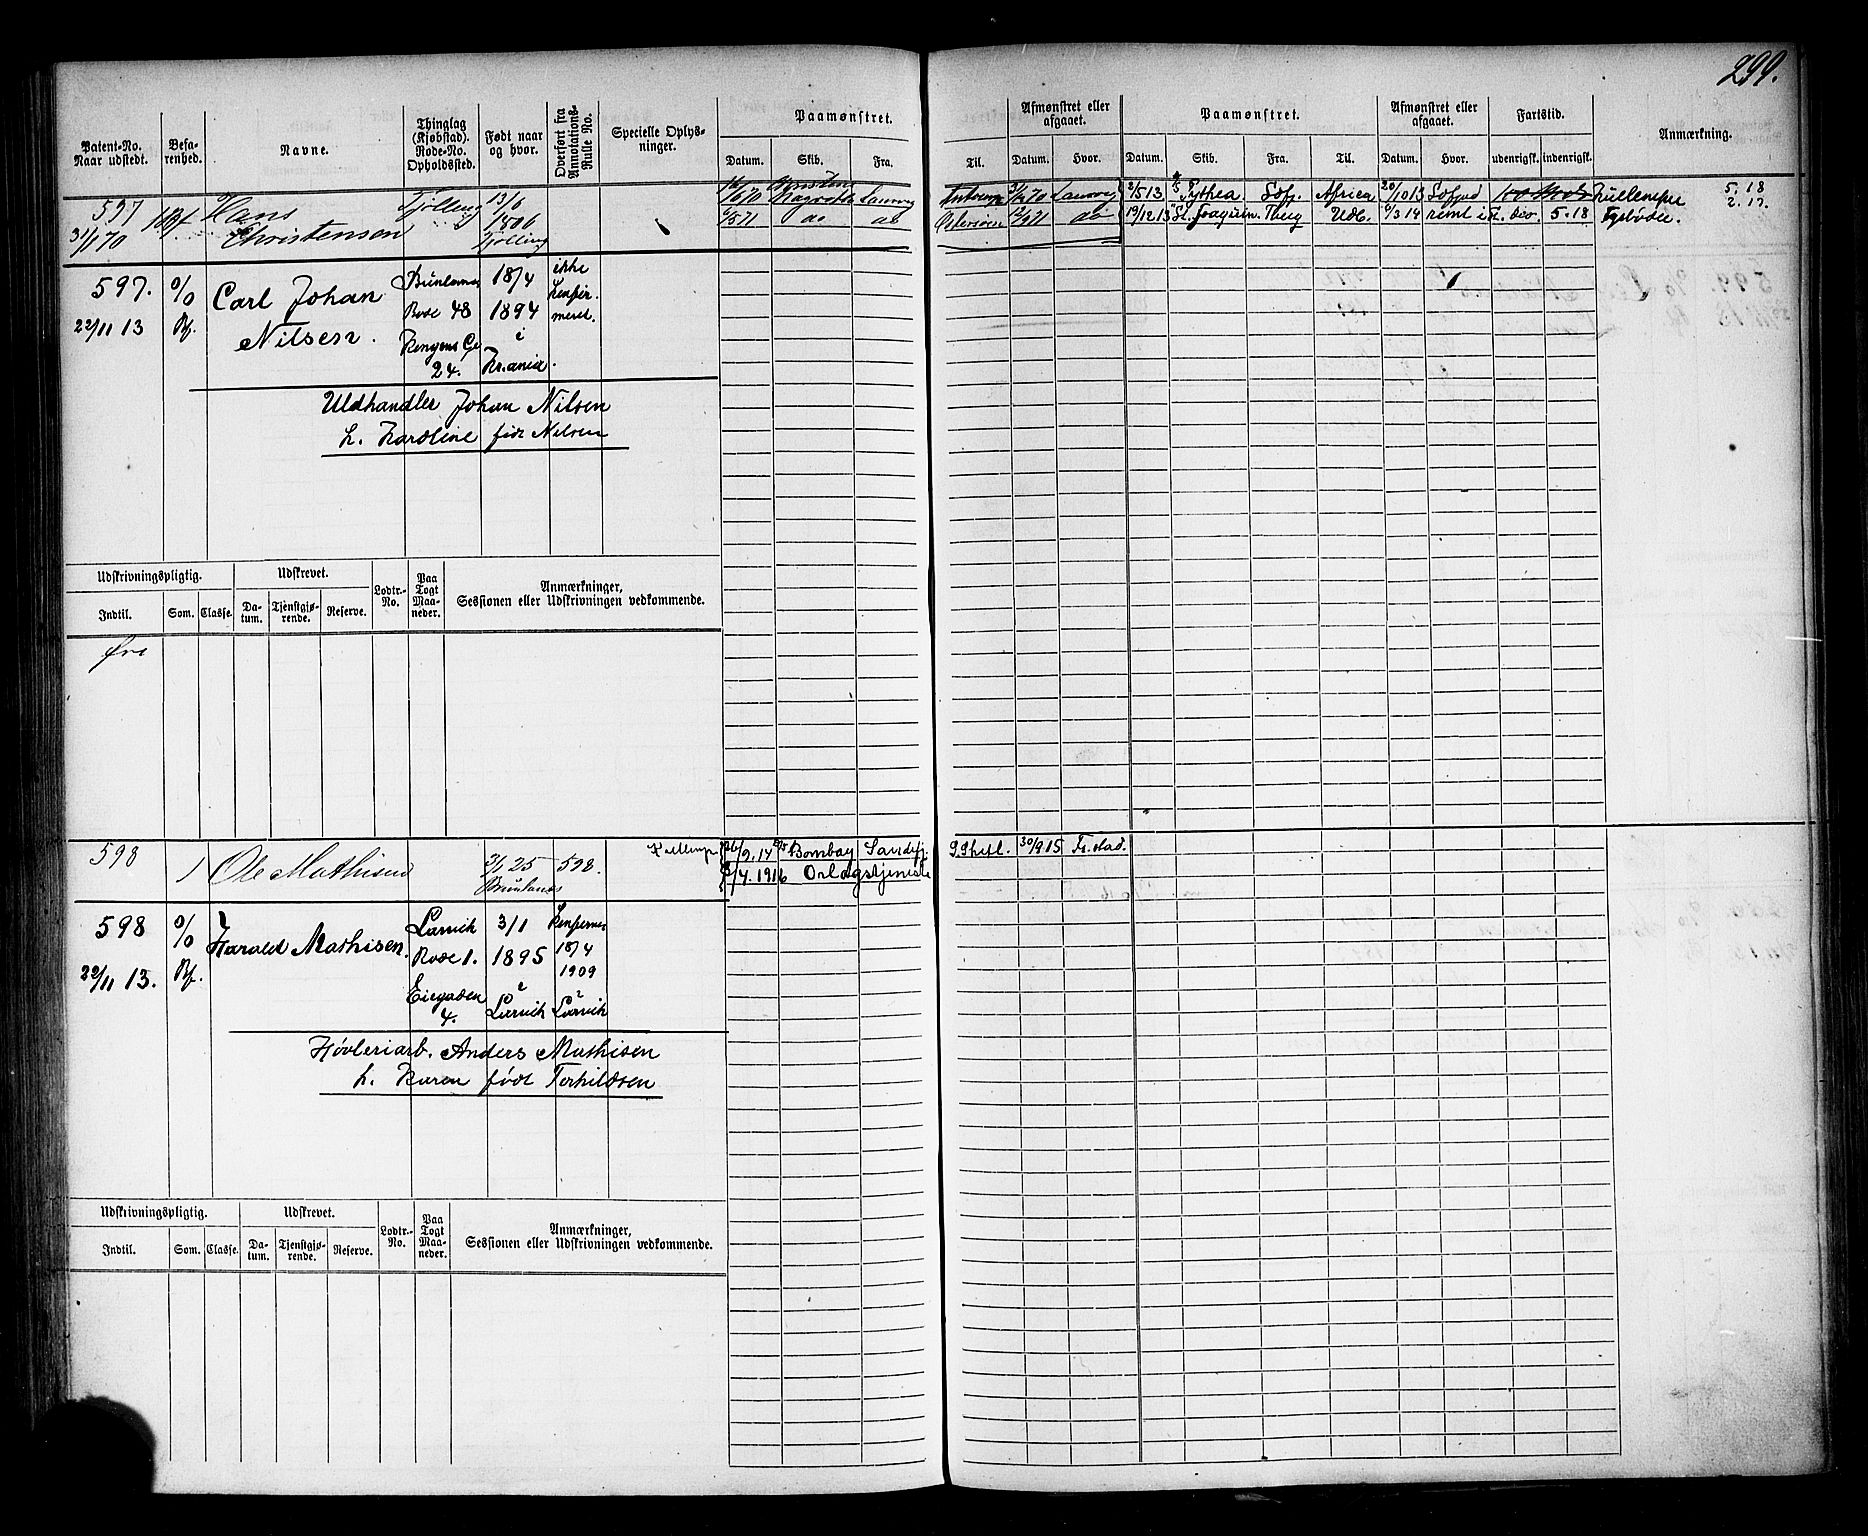 299.
Patent-No. Naar udstedt. Befarenhed. Navne. Thinglag (Kjøbstad). Rode-No. Opholdssted. Født naar og hvor. Overført fra Annotations-Rulle No. Specielle Oplysninger. Paamønstret. Datum. Skib. Fra. Til. Afmønstret eller afgaaet. Datum. Hvor. Paamønstret. Datum. Skib. Fra. Til. Afmønstret eller afgaaet. Datum. Hvor. Fartstid. udenrigsk. indenrigsk. Anmærkning.
597 Hans Tjølling 13/6
31/1 70 Christensen 1806
Tjølling
6/5 71 do do
Antwerp 70 Laurvig 2/5 13 Pythea Africa 20/10 13 5.18
Østersøen do 19/12 13 St. Joaquim Tberg Udl. 6/3 14 5.18 2.17.
597. 0/0 Carl Johan Brunlanes 18/4 ikke
22/11 13 Bf. Nilsen. Rode 48 1894 konfirmeret.
Kongens G. i
24. Kr.ania.
Uldhandler Johan Nilsen
h. Karoline født Nilsen
Udskrivningspligtig. Udskrevet. Lodtr.-No. Paa Togt Maaneder. Anmærkninger, Sessionen eller Udskrivningen vedkommende.
Indtil. Som. Classe. Datum. Tjenstgjørende. Reserve.
598 1 Ole Mathisen 3/1 25 598.
Brunlanes
9.14 Bombay Sandefj. S. Shetl. 30/8 15 Fr.stad.
/4.1916 Orlogstjeneste
598 0/0 Harald Mathisen. Larvik 3/1
22/11 13. Bf. Rode 1. 1895 18/4
1909
Eiegaden i i
4. Larvik Larvik
Høvleriarb. Anders Mathisen
h. Karen født Torkildsen
Udskrivningspligtig. Udskrevet. Lodtr.-No. Paa Togt Maaneder. Anmærkninger, Sessionen eller Udskrivningen vedkommende.
Indtil. Som. Classe. Datum. Tjenstgjørende. Reserve.